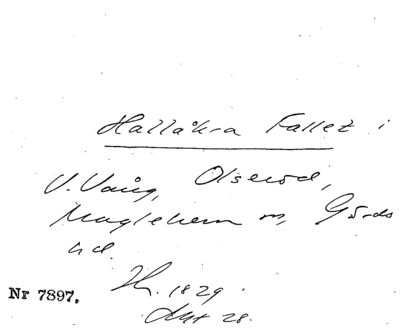 Hallåkra Fallet i
V. Vång, Olseröd,
Maglehem sn, Gärds
hd.
Nr 7897.
1829
28.